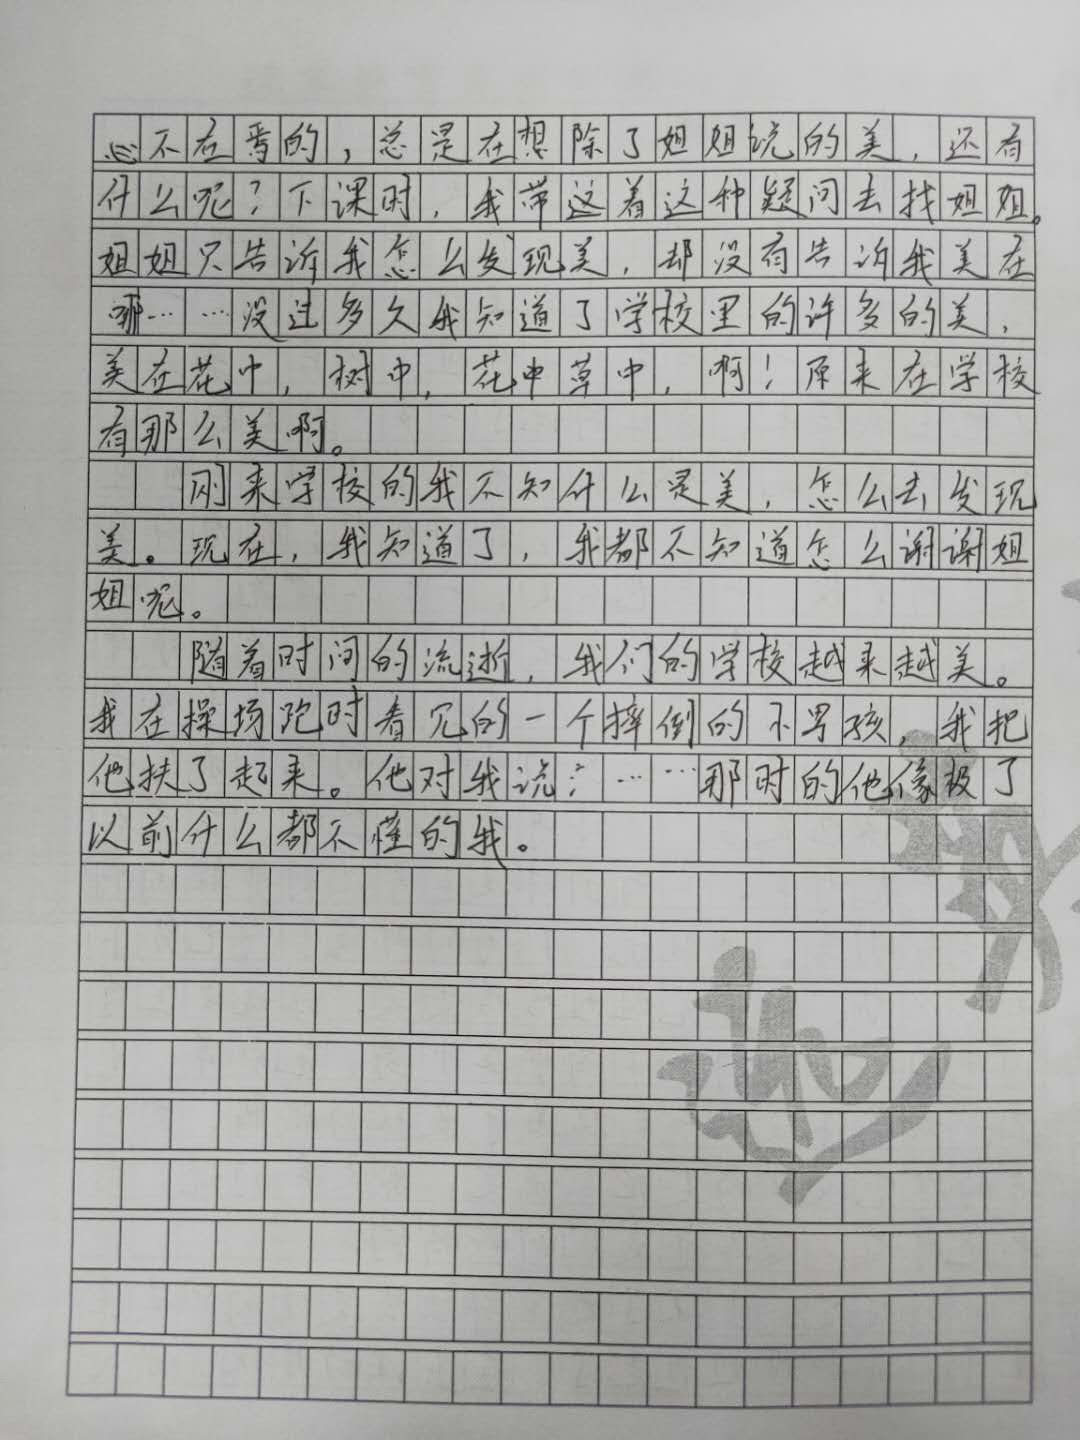 心不在焉的,总是在想除了姐姐说的美,还有
什么呢?下课时,我带这着这种疑问去找姐姐。
姐姐只告诉我怎么发现美,却没有告诉我美在
哪……没过多久我知道了学校里的许多的美,
美在花中,树中,花中草中,啊!原来在学校
有那么美啊。
刚来学校的我不知什么是美,怎么去发现
美。现在,我知道了,我都不知道怎么谢谢姐
姐呢。
随着时间的流逝,我们的学校越来越美。
我在操场跑时看见的一个摔倒的不男孩,我把
他扶了起来。他对我说:……那时的他像极了
以前什么都不懂的我。